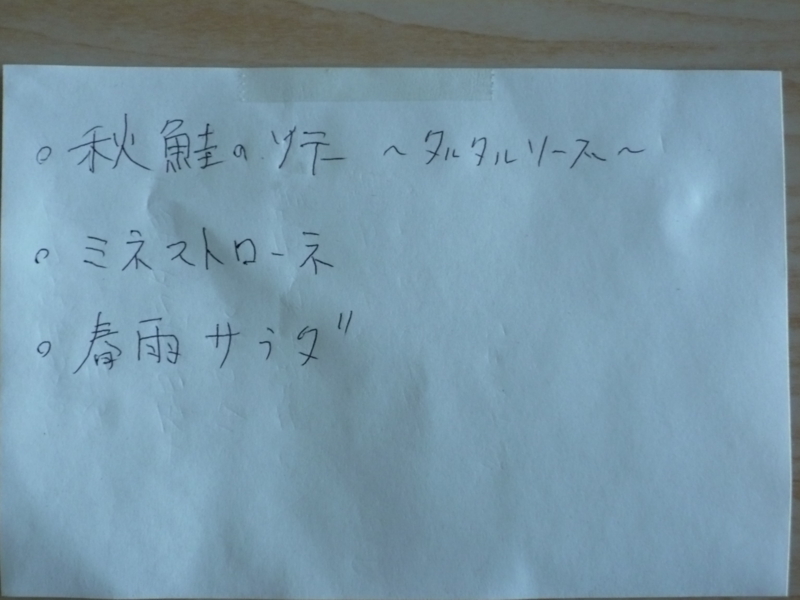 ○ 秋鮭のソテー 〜タルタルソース〜
○ ミネストローネ
○ 春雨サラダ